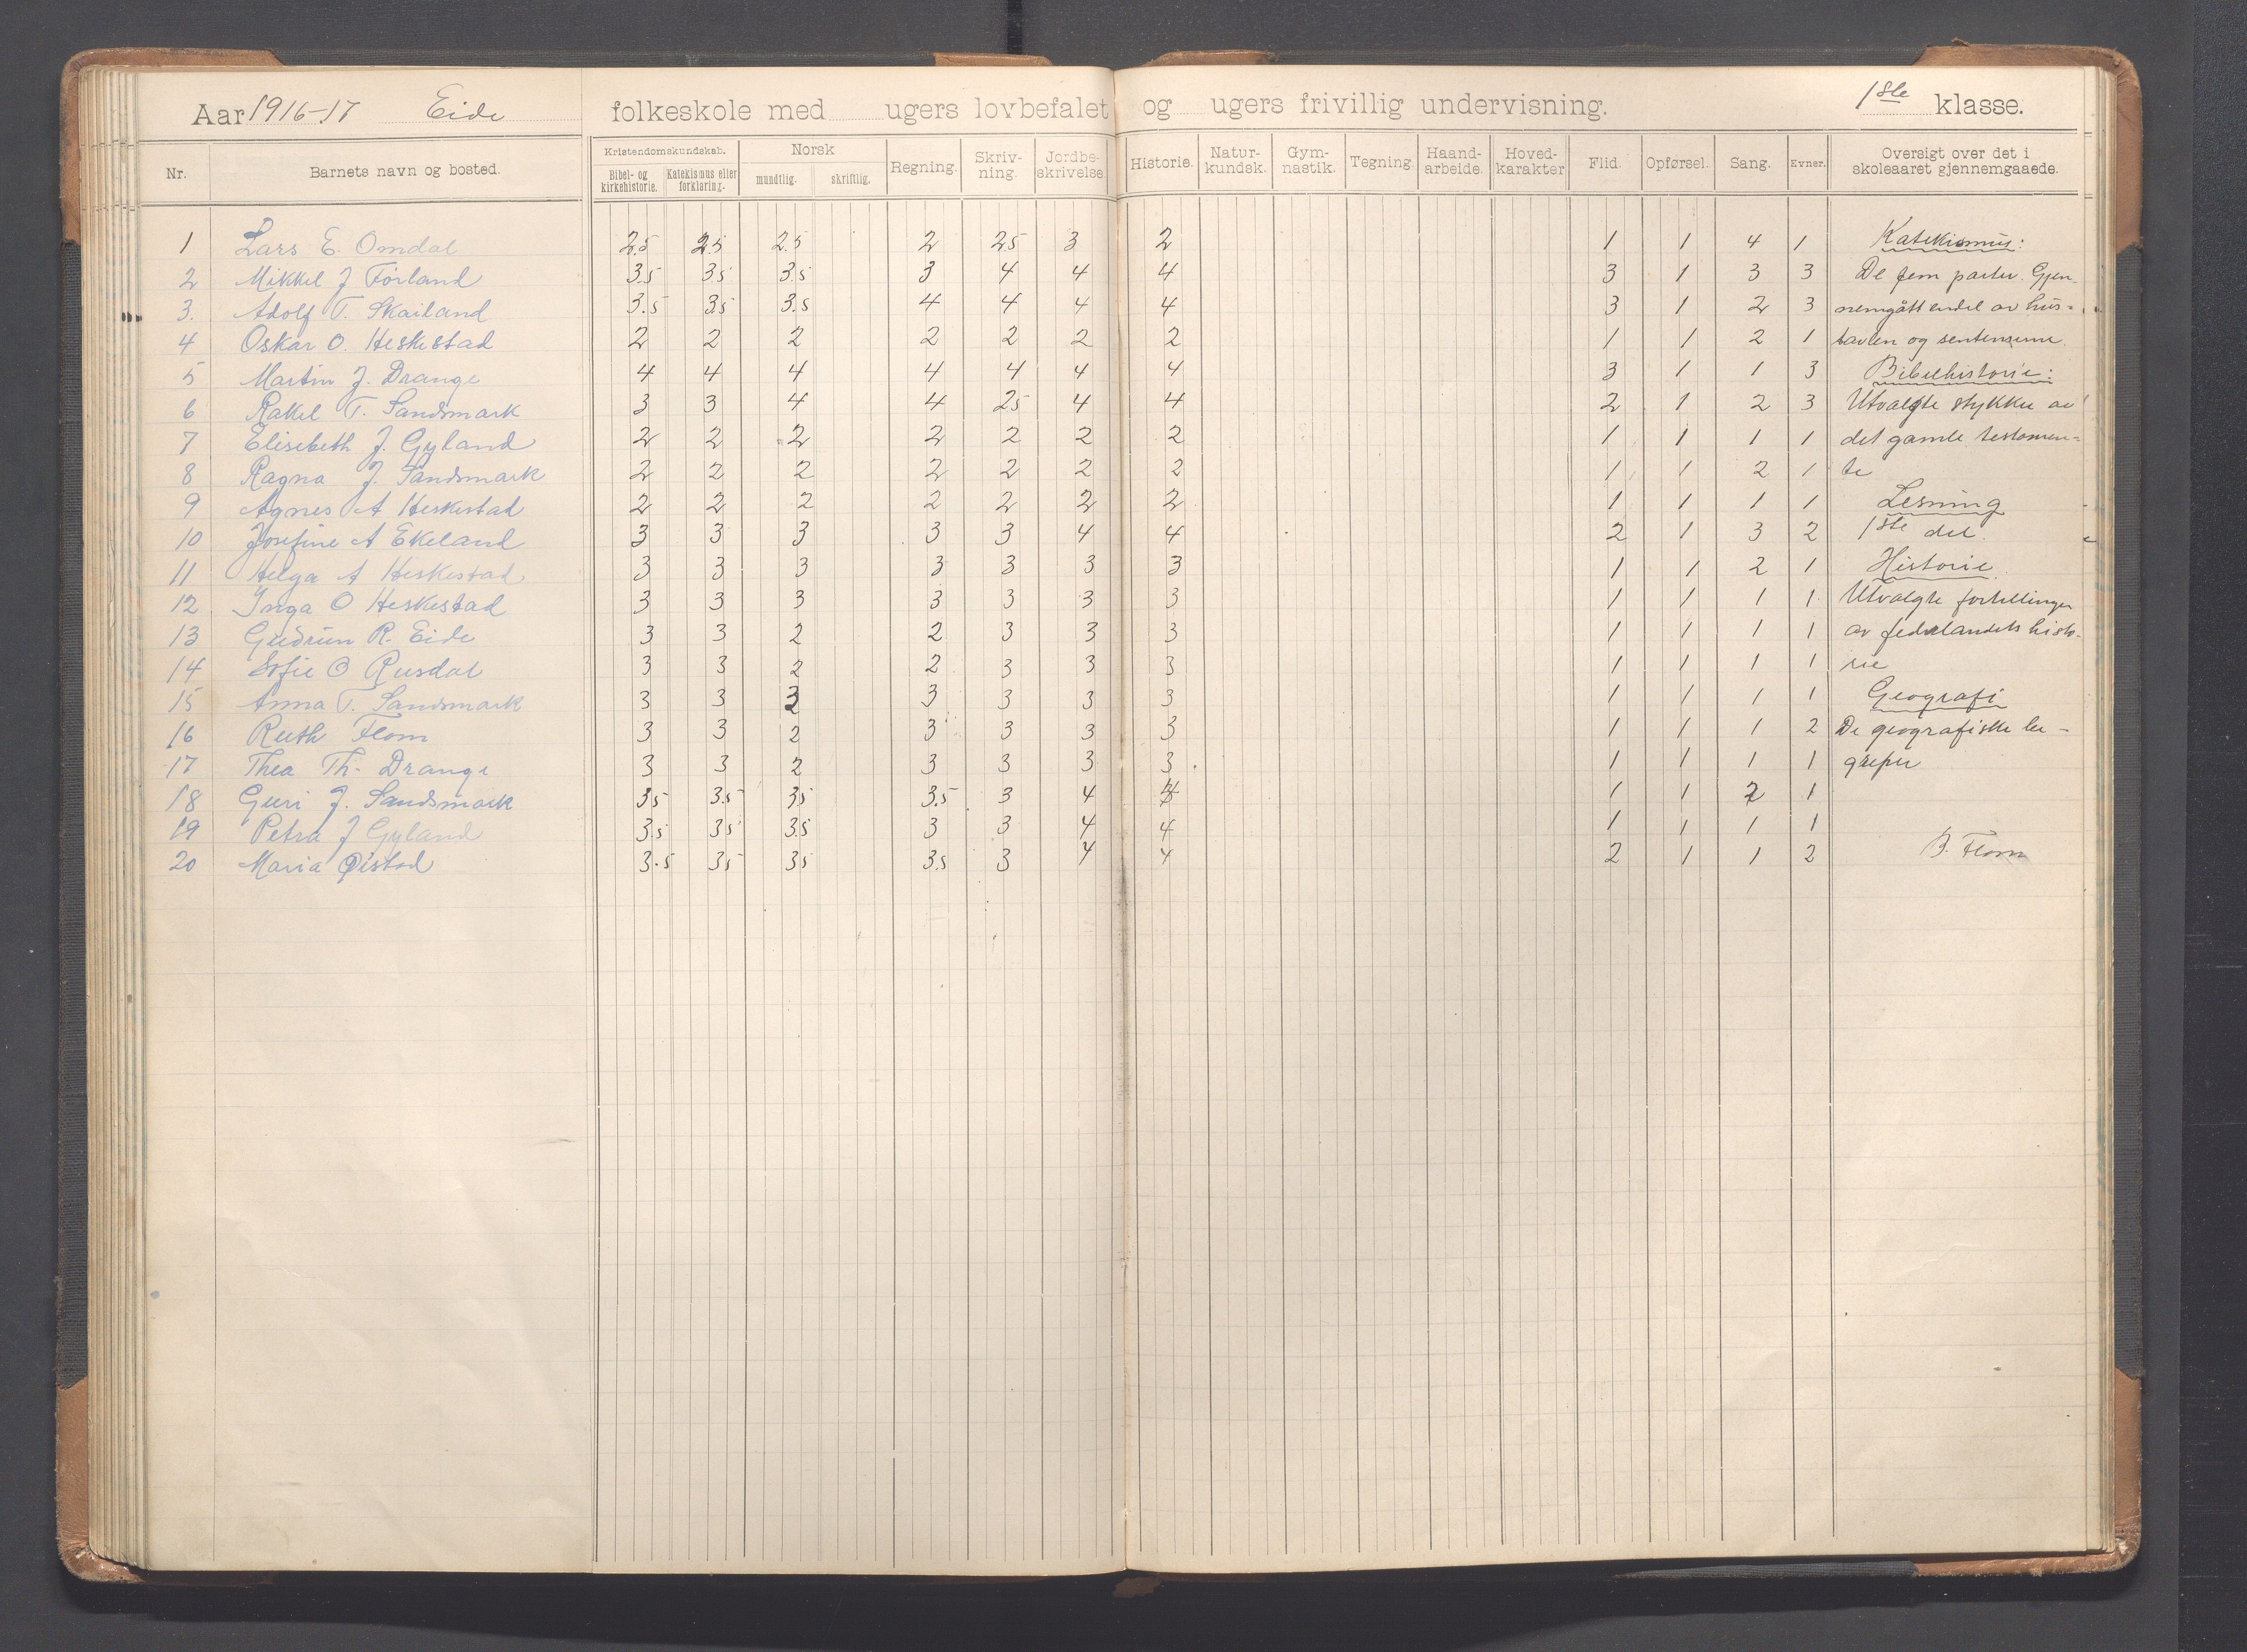 Aar 1916-17 Eide folkeskole med ugers lovbefalet og ugers frivillig undervisning. 1ste klasse.
Nr. Barnets navn og bosted. Kristendomskundskab. Norsk Regning. Skriv-ning. Jordbe-skrivelse Historie. Natur-kundsk. Gym-nastik. Tegning. Haand-arbeide. Hoved-karakter Flid. Opførsel. Sang. Evner. Oversigt over det i skoleaaret gjennemgaaede.
Bibel- og kirkehistorie. Katekismus eller forklaring. mundtlig. skriftlig.
1 Lars E. Omdal 2.5 2.5 2.5 2 2.5 3 2 1 1 4 1 Katekismus:
2 Mikkel J Førland 3.5 3.5 3.5 3 4 4 4 3 1 3 3 De fem parter. Gjen-
3. Adolf T. Skailand 3.5 3.5 3.5 4 4 4 4 3 1 2 3 nemgått endel av hus=
4 Oskar O. Heskestad 2 2 2 2 2 2 2 1 1 2 1 tavlen og sentensene.
5 Martin J. Drange 4 4 4 4 4 4 4 3 1 1 3 Bibelhistorie:
6 Rakel T. Sandsmark 3 3 4 4 25 4 4 2 1 2 3 Utvalgte stykker av
7 Elisebeth J. Gyland 2 2 2 2 2 2 2 1 1 1 1 det gamle testamen=
8 Ragna J. Sandsmark 2 2 2 2 2 2 2 1 1 2 1 te
9 Agnes A Heskestad 2 2 2 2 2 2 2 1 1 1 1 Lesning
10 Josefine A Ekeland 3 3 3 3 3 4 4 2 1 3 2 1ste del.
11 Helga A Heskestad 3 3 3 3 3 3 3 1 1 2 1 Historie.
12 Inga O Heskestad 3 3 3 3 3 3 3 1 1 1 1 Utvalgte fortellinger
13 Gudrun R. Eide 3 3 2 2 3 3 3 1 1 1 1 av fedrelandets histo-
14 Sofie O Rusdal 3 3 2 2 3 3 3 1 1 1 1 rie
15 Anna T. Sandsmark 3 3 3 3 3 3 1 1 1 1 Geografi
16 Ruth Flom 3 3 2 3 3 3 3 1 1 1 2 De geografiske be-
17 Thea Th. Drange 3 3 2 3 3 3 3 1 1 1 1 greper
18 Guri J. Sandsmark 35 3.5 35 3.5 3 4 1 1 2 1
19 Petra J Gyland 3.5 35 3.5 3 3 4 4 1 1 1 1
20 Maria Øistad 3.5 35 35 3.5 3 4 4 2 1 1 2 B. Flom